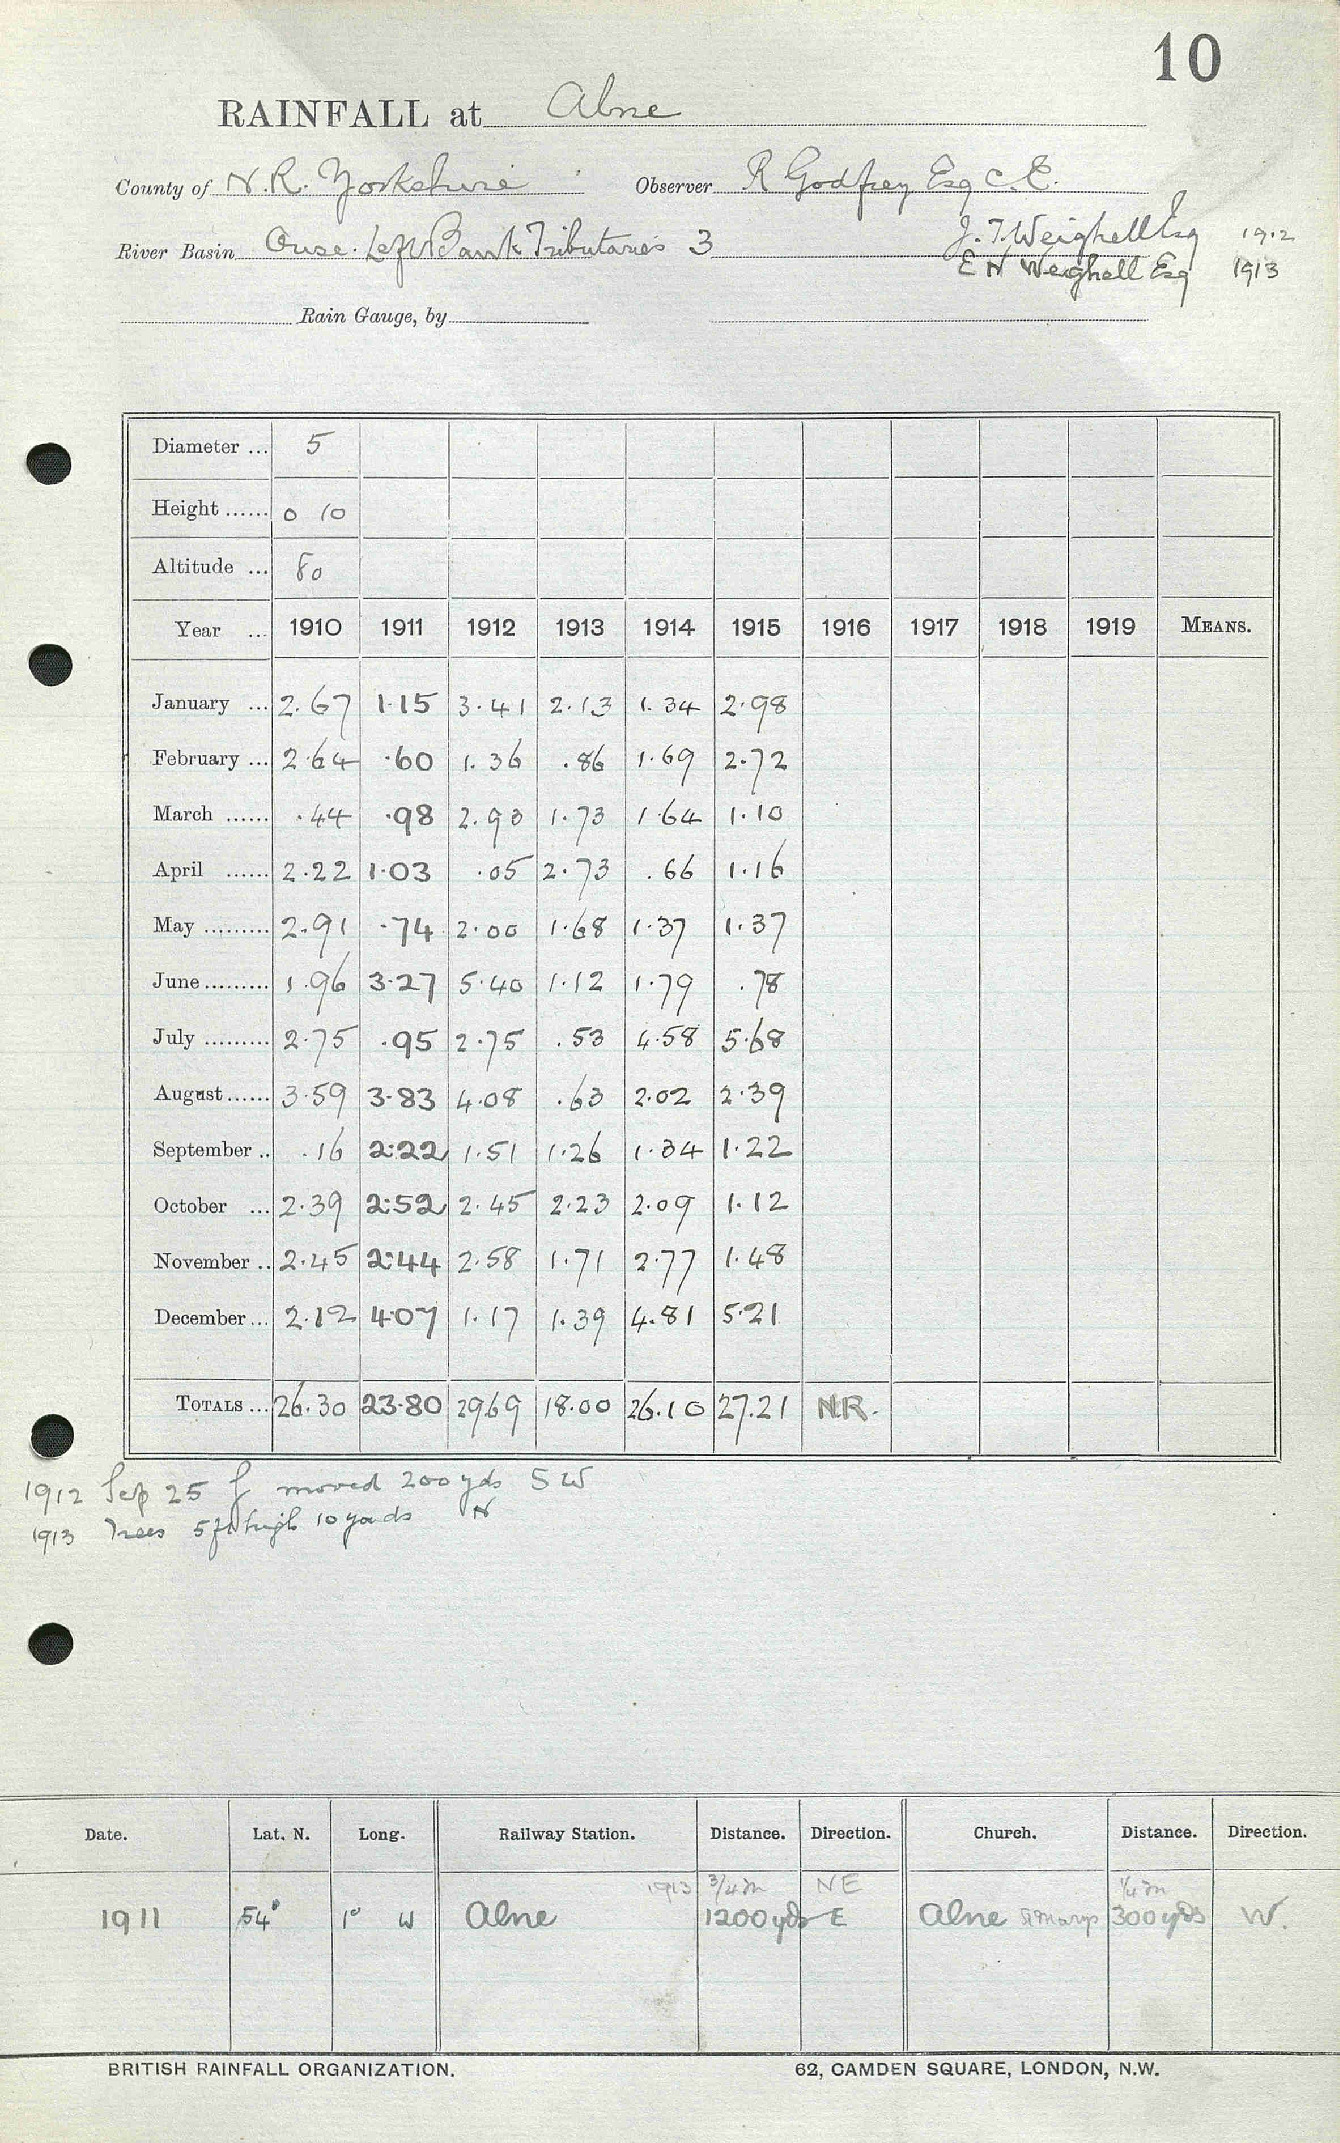 10
RAINFALL at Alne
County of N.R. Yorkshire Observer R Godfrey Esq C.E.
River Basin Ouse. Left Bank Tributaries 3 J. T. Weighell Esq 1912
E N Weighell Esq 1913
Rain Gauge, by
Diameter ... 5
Height ...... 0 10
Altitude ... 80
Year ... 1910 1911 1912 1913 1914 1915 1916 1917 1918 1919 MEANS.
January ... 2.67 1.15 3.41 2.13 1.34 2.98
February ... 2.64 .60 1.36 .86 1.69 2.72
March ...... .44 .98 2.93 1.73 1.64 1.10
April ...... 2.22 1.03 .05 2.73 .66 1.16
May ......... 2.91 .74 2.00 1.68 1.37 1.37
June ......... 1.96 3.27 5.40 1.12 1.79 .78
July ......... 2.75 .95 2.75 .53 4.58 5.68
August ...... 3.59 3.83 4.08 .63 2.02 2.39
September .. .16 2.22 1.51 1.26 1.34 1.22
October ... 2.39 2.52 2.45 2.23 2.09 1.12
November .. 2.45 2.44 2.58 1.71 2.77 1.48
December ... 2.12 4.07 1.17 1.39 4.81 5.21
TOTALS ... 26.30 23.80 29.69 18.00 26.10 27.21 N.R.
1912 Sep 25 g moved 200 yds SW
1913 Trees 5 ft high 10 yards N
Date. Lat. N. Long. Railway Station. Distance. Direction. Church. Distance. Direction.
1913 3/4 m NE 1/4 m
1911 54° 1° W Alne 1200 yds E Alne St Marys 300 yds W.
BRITISH RAINFALL ORGANIZATION. 62, CAMDEN SQUARE, LONDON, N.W.